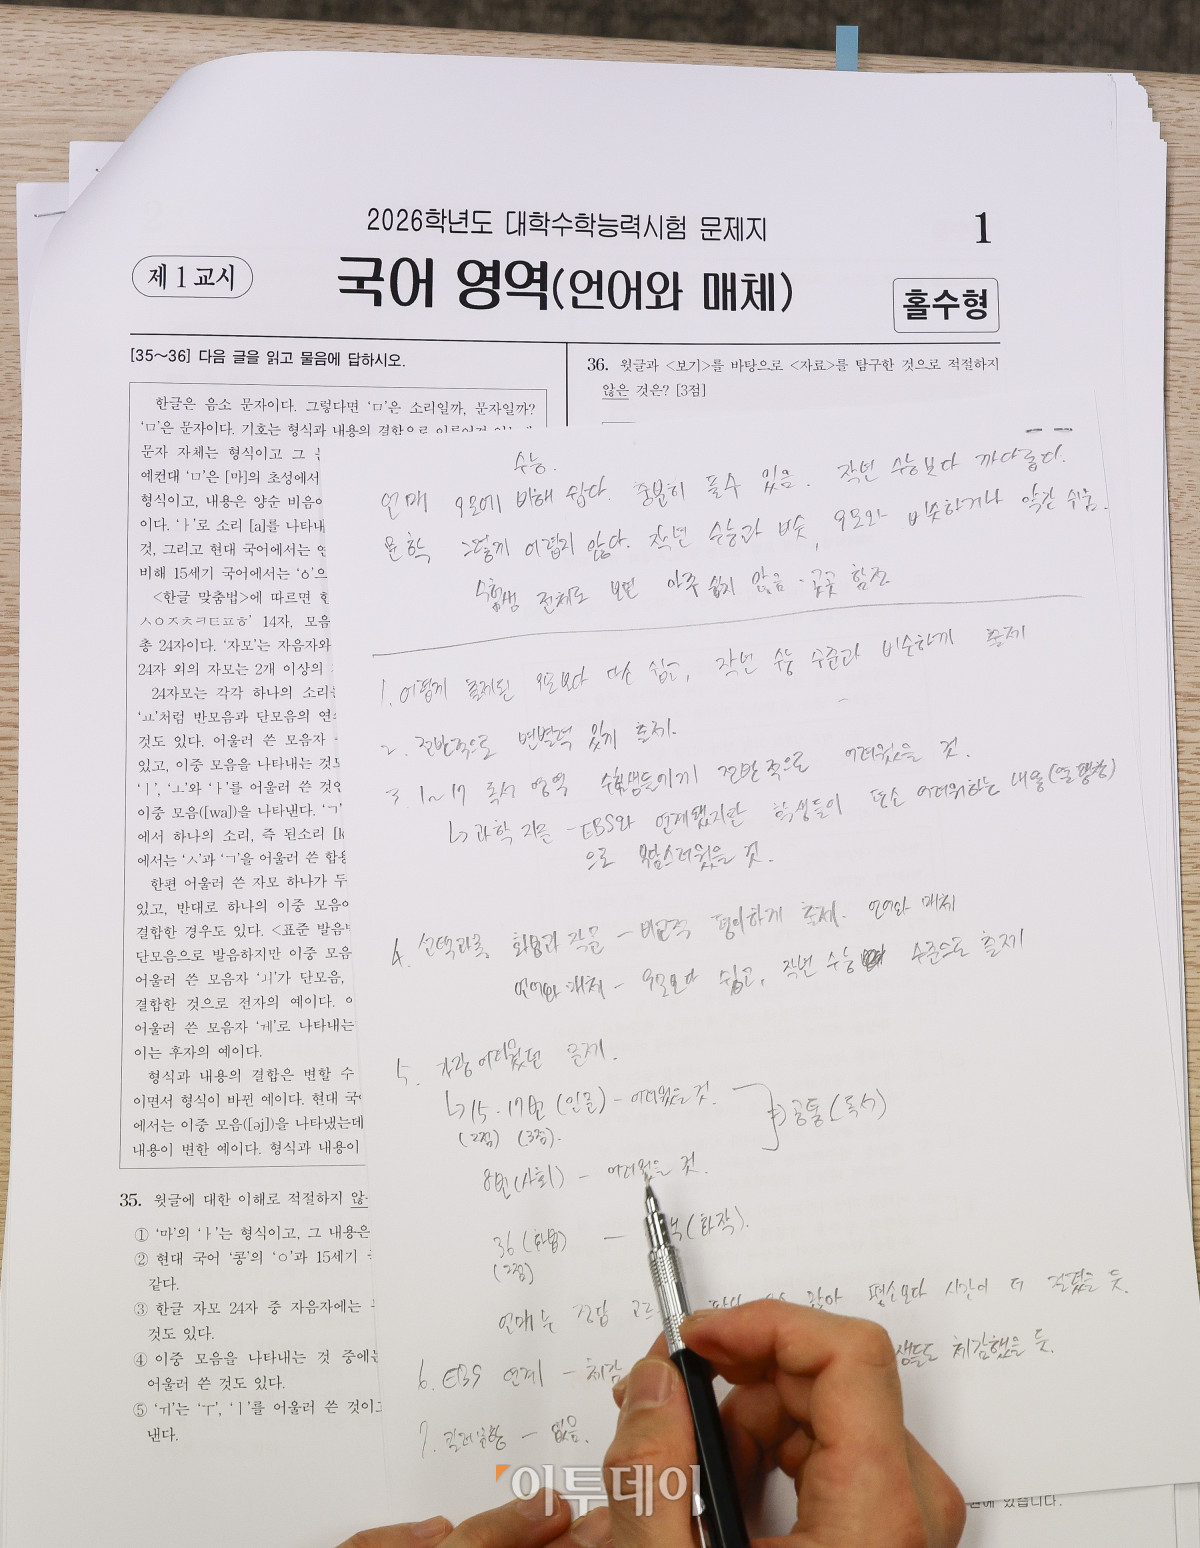 2026학년도 대학수학능력시험 문제지
1
제 1 교시
국어 영역(언어와 매체)
홀수형
[35～36] 다음 글을 읽고 물음에 답하시오.
한글은 음소 문자이다. 그렇다면 ‘ㅁ’은 소리일까, 문자일까?
‘ㅁ’은 문자이다. 기호는 형식과 내용의 결합으로
문자 자체는 형식이고 그
예컨대 ‘ㅁ’은 [마]의 초성에서
형식이고, 내용은 양순 비음이
이다. ‘ㅏ’로 소리 [a]를 나타내
것, 그리고 현대 국어에서는
비해 15세기 국어에서는 ‘ㆁ’으
<한글 맞춤법>에 따르면
ㅅㅇㅈㅊㅋㅌㅍㅎ’ 14자, 모음
총 24자이다. ‘자모’는 자음자와
24자 외의 자모는 2개 이상의
24자모는 각각 하나의 소리
‘ㅛ’처럼 반모음과 단모음의 연
것도 있다. 어울러 쓴 모음자
있고, 이중 모음을 나타내는 것도
‘ㅣ’, ‘ㅗ’와 ‘ㅏ’를 어울러 쓴 것
이중 모음([wa])을 나타낸다. ‘ㄱ’
에서 하나의 소리, 즉 된소리
에서는 ‘ㅅ’과 ‘ㄱ’을 어울러 쓴 합용
한편 어울러 쓴 자모 하나가 두
있고, 반대로 하나의 이중 모음이
결합한 경우도 있다. <표준 발음법
단모음으로 발음하지만 이중 모음
어울러 쓴 모음자 ‘ㅚ’가 단모음,
결합한 것으로 전자의 예이다.
어울러 쓴 모음자 ‘ㅔ’로 나타내는
이는 후자의 예이다.
형식과 내용의 결합은 변할 수
이면서 형식이 바뀐 예이다. 현대
에서는 이중 모음([əj])을 나타냈는데
내용이 변한 예이다. 형식과 내용이
35. 윗글에 대한 이해로 적절하지
① ‘마’의 ‘ㅏ’는 형식이고, 그 내용은
② 현대 국어 ‘콩’의 ‘ㅇ’과 15세기
같다.
③ 한글 자모 24자 중 자음자에는
것도 있다.
④ 이중 모음을 나타내는 것 중에는
어울러 쓴 것도 있다.
⑤ ‘ㅟ’는 ‘ㅜ’, ‘ㅣ’를 어울러 쓴 것이고
낸다.
36. 윗글과 <보기>를 바탕으로 <자료>를 탐구한 것으로 적절하지
않은 것은? [3점]
수능.
언매 9모에 비해 쉽다. 충분히 풀수 있음. 작년 수능보다 까다롭다.
문학 그렇게 어렵지 않다. 작년 수능과 비슷, 9모와 비슷하거나 약간 쉬움.
수험생 전체로 보면 아주 쉽지 않음. 곳곳 함정
1. 어떻게 출제된 9모보다 다소 쉽고, 작년 수능 수준과 비슷하게 출제
2. 전반적으로 변별력 있게 출제.
3. 1~17 독서 영역 수험생들에게 전반적으로 어려웠을 것.
↳ 과학 지문 - EBS와 연계됐지만 학생들이 다소 어려워하는 내용(열팽창)
으로 부담스러웠을 것.
4. 선택과목 화법과 작문 - 비교적 평이하게 출제. 언어와 매체
언어와 매체 - 9모보다 쉽고, 작년 수능 수준으로 출제
5. 가장 어려웠던 문제.
↳ 15. 17번 (인문) - 어려웠을 것.
⇒ 공통(독서)
(2점) (3점).
8번(사회) - 어려웠을 것.
36 (화법) - (화작).
(2점)
언매 두 정답 고르 않아 평소보다 시간이 더 걸렸을 듯.
6. EBS 연계 - 체감 생들도 체감했을 듯.
7. 킬러문항 - 없음.
이투데이
있습니다.